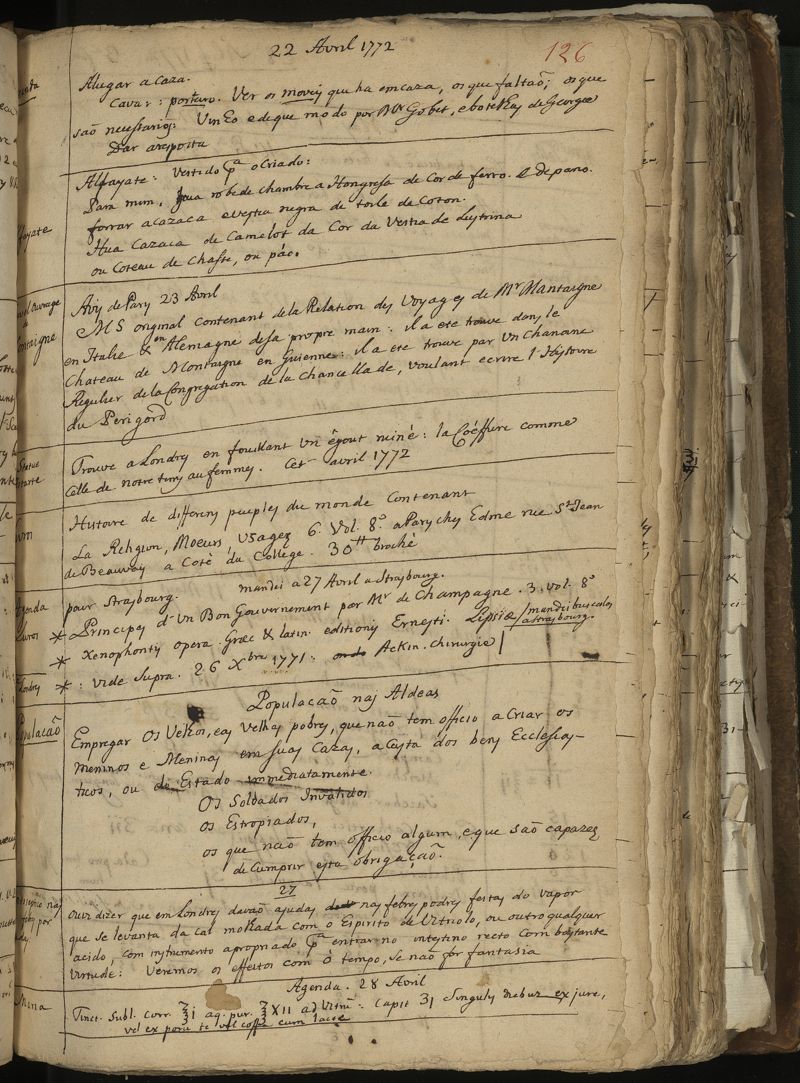 22 Avril 1772
126
Alugar a caza.
Cavar: porteiro. Ver os moveis que ha em caza, os que faltaõ; os que
saõ necessarios: Vinho e de que modo por Mr Gobet, e botelhas de George
Dar a resposta
Alfayate: Vestido pa o Criado:
Para mim, hua robe de chambre a Hongresa de Cor de ferro. e de pano.
forrar a cazaca e vestia negra de toile de Coton.
Hua Cazaca de Camelot da Cor da Vestia de
ou Coteau de Chasse, ou páo.
Avis de Paris 23 Avril
MS original Contenant de la Relation des Voyages de Mr Montaigne
en Italie & en Alemagne de sa propre main: il a eté trouvé dans le
Chateau de Montaigne en Guienne: il a eté trouvé par un Chanoine
Regulier de la Congregation de la Chancellade, voulant ecrire l'Histoire
du Perigord
Statue
Trouvé a Londres en fouillant un êgout miné: la Coéffure comme
celle de notre tems au femmes. Cet avril 1772
Histoire de differens peuples du monde Contenant
La Religion, Moeurs, Usages 6. Vol. 8º. a Paris ches Edme rue St Jean
de Beauvais a Coté du College. 30 tt broché
Agenda
pour Strasbourg. mandei a 27 Avril a Strasbourg.
Livros
* Principes d'Un Bon Gouvernement par Mr de Champagne. 3. vol. 8º
* Xenophontis opera Græc & latin. editionis Ernesti. Lipsiæ / mandei buscalos a Strasbourg.
Londres * : vide Supra. 26 Xbre 1771: Aekin. chirurgie
Populacaõ
Populacaõ nas Aldeas
Empregar os Velhos, e as Velhas pobres, que naõ tem officio a Criar os
meninos e Meninas em suas Cazas, a custa dos bens Ecclesias-
ticos, ou de Estado immediatamente.
Os Soldados Invalidos
os Estropiados,
os que naõ tem officio algum, e que saõ capazes
de Cumprir esta obrigaçaõ.
27
Ouvi dizer que em Londres davaõ ajudas nas febres podres feitas do vapor
que se levanta da cal molhada com o Espirito de Vitriolo, ou outro qualquer
acido, com instrumento apropriado pa entrar no intestino recto com bastante
virtude: Veremos os effeitos com o tempo, se naõ for fantasia
Agenda. 28 Avril
Tinct. Subl. corr. ʒi aq. pur. ʒXII ad Vitrũ: Capit 31 Singulis diebus ex jure,
vel ex potu te vel coffé cum lacte